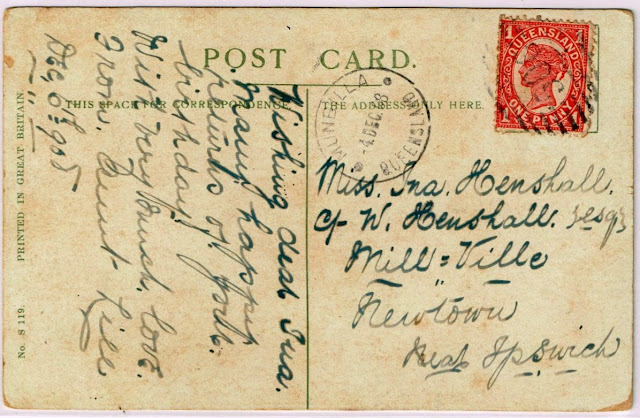 POST CARD.
THIS SPACE FOR CORRESPONDENCE
THE ADDRESS ONLY HERE.
Wishing dear Ina.
many happy
returns of your
birthday.
With very Much love.
From. Aunt Lill
Dec 6th 1908
Miss. Ina. Henshall.
c/- W. Henshall. Esqr
Mill=Ville
Newtown
Near Ipswich
QUEENSLAND
1 1
ONE PENNY
QUEENSLAND
4 DEC 08
No. S 119. PRINTED IN GREAT BRITAIN.